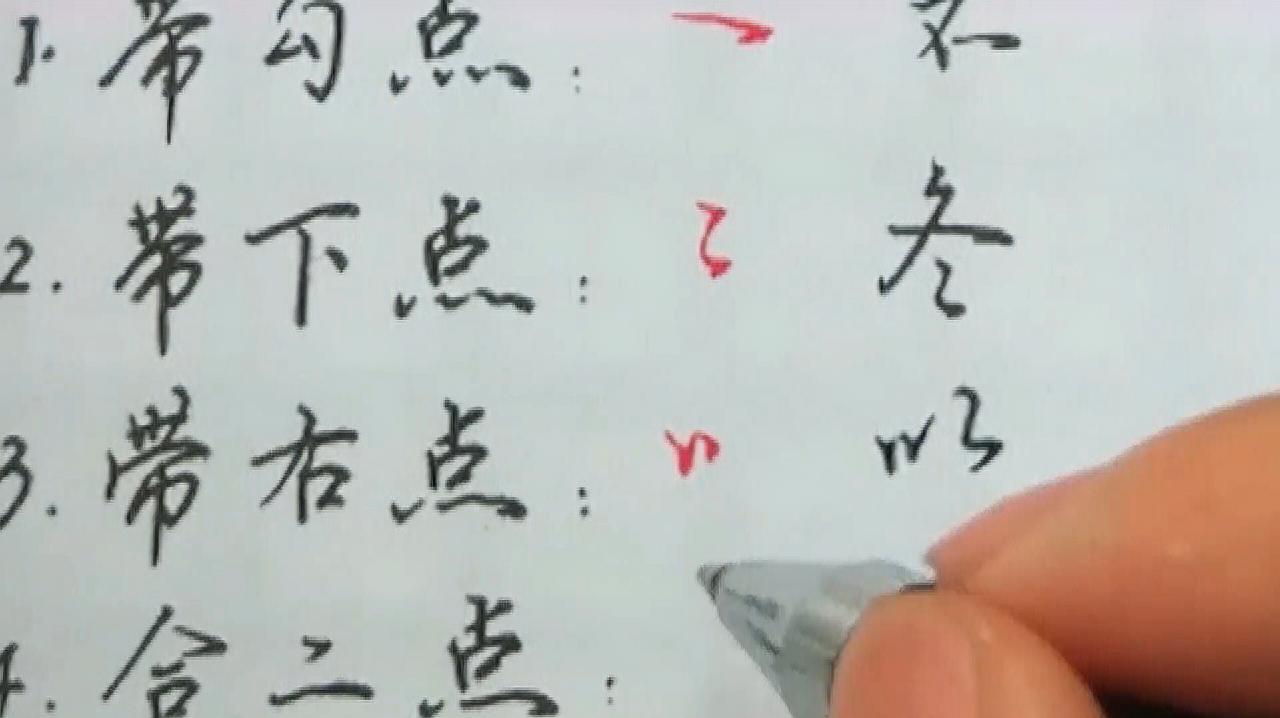 1. 带勾点：
2. 带下点： 冬
3. 带右点：
4. 合二点：